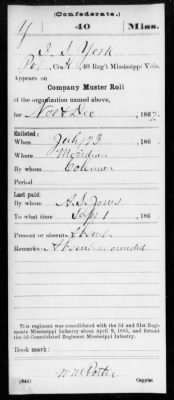 (Confederate.)
Y 40 Miss.
J. J. York
Co. 40 Reg't Mississippi Vols.
Appears on
Company Muster Roll
of the organization named above,
for Nov & Dec, 186
Enlisted:
When July 23, 186
Where Meridian
By whom Coleman
Period
Last paid:
By whom A. S. Jones
To what time Sept 1, 186
Present or absent Absent
Remarks: Absent wounded
This regiment was consolidated with the 3d and 31st Regiments Mississippi Infantry about April 9, 1865, and formed the 3d Consolidated Regiment Mississippi Infantry.
Book mark:
(642) Copyist.